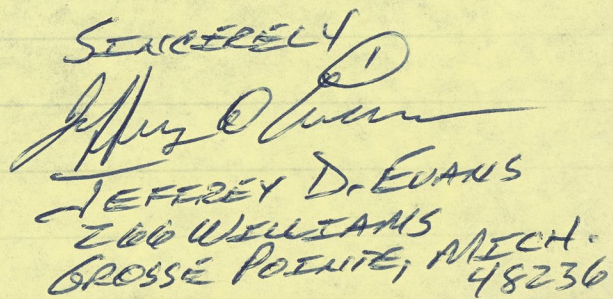 SINCERELY
Jeffrey D Evans
JEFFREY D. EVANS
266 WILLIAMS
GROSSE POINTE, MICH.
48236